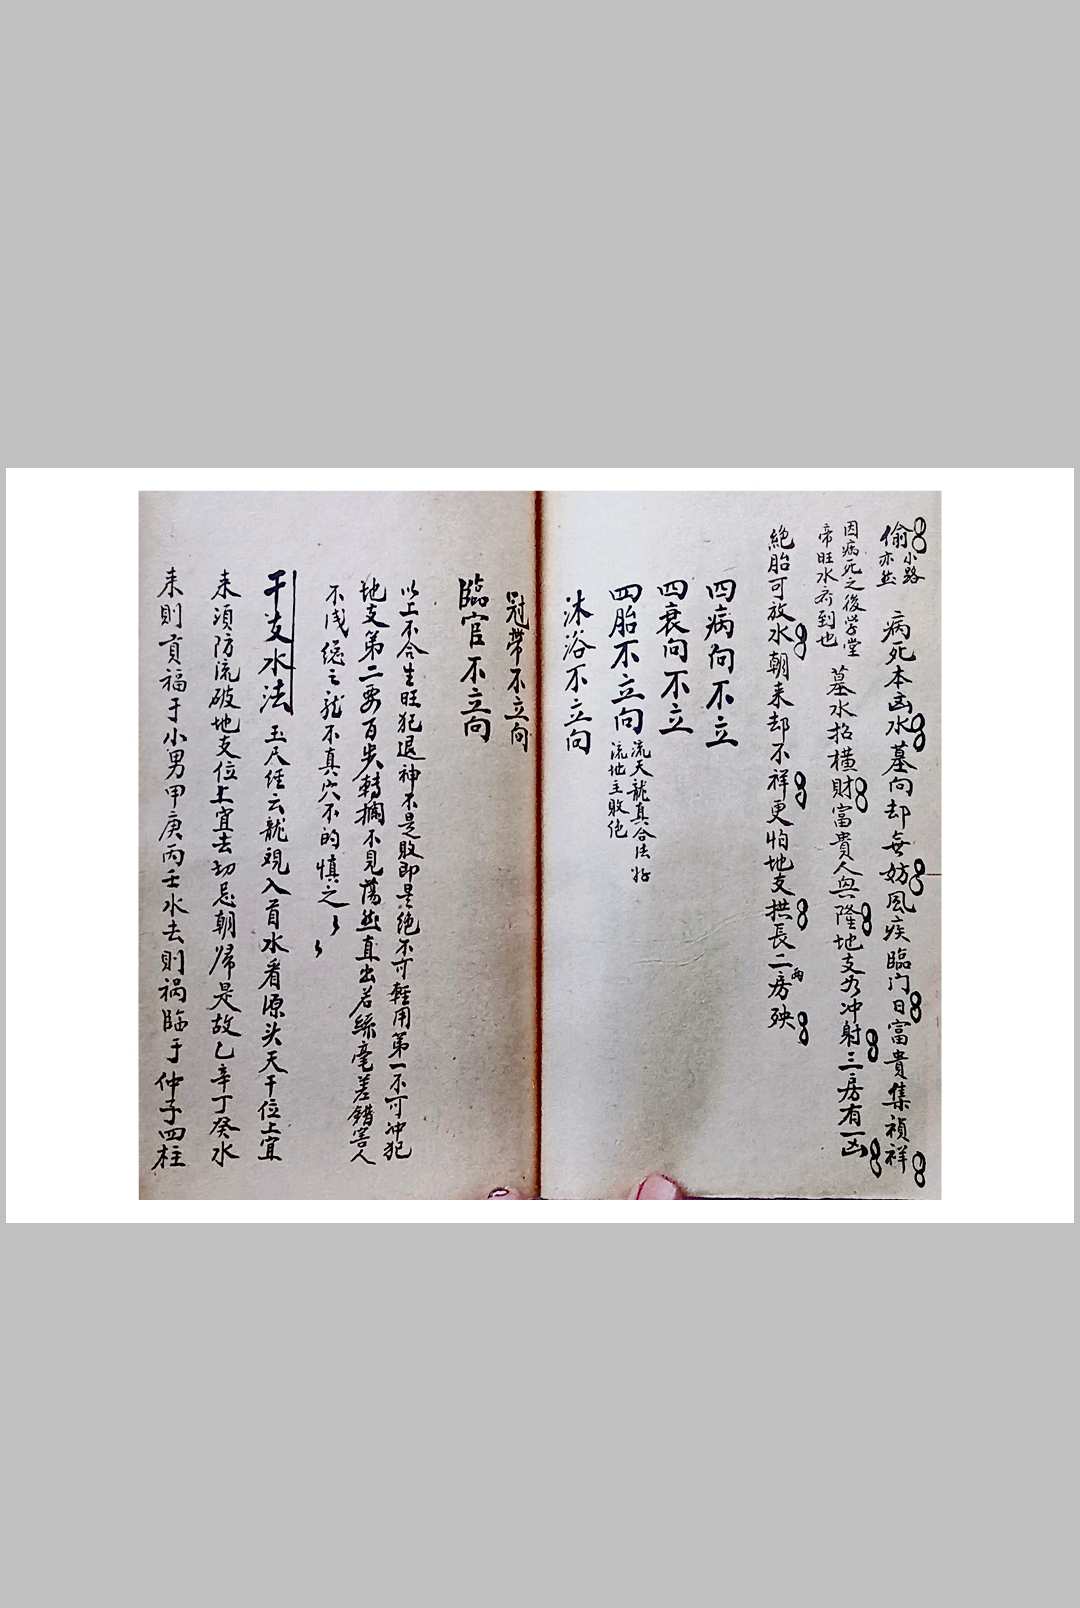 偷小路亦然 病死本凶水墓向却無妨風疾臨门日富貴集禎祥
因病死之後学堂帝旺水齐到也 墓水招横財富貴人興隆地支為冲射三房有一凶
絶胎可放水朝来却不祥更怕地支拱長二房殃
兩
四病向不立
四衰向不立
四胎不立向 流天龍真合法好流地主敗绝
沐浴不立向
冠带不立向
臨官不立向
以上不合生旺犯退神不是敗即是絶不可輕用第一不可冲犯
地支第二要百步轉攔不見蕩然直出若絲毫差錯害人
不浅總之龍不真穴不的慎之
干支水法 玉尺经云龍观入首水看源头天干位上宜
来須防流破地支位上宜去切忌朝帰是故乙辛丁癸水
来則貢福于小男甲庚丙壬水去則祸臨于仲子四柱